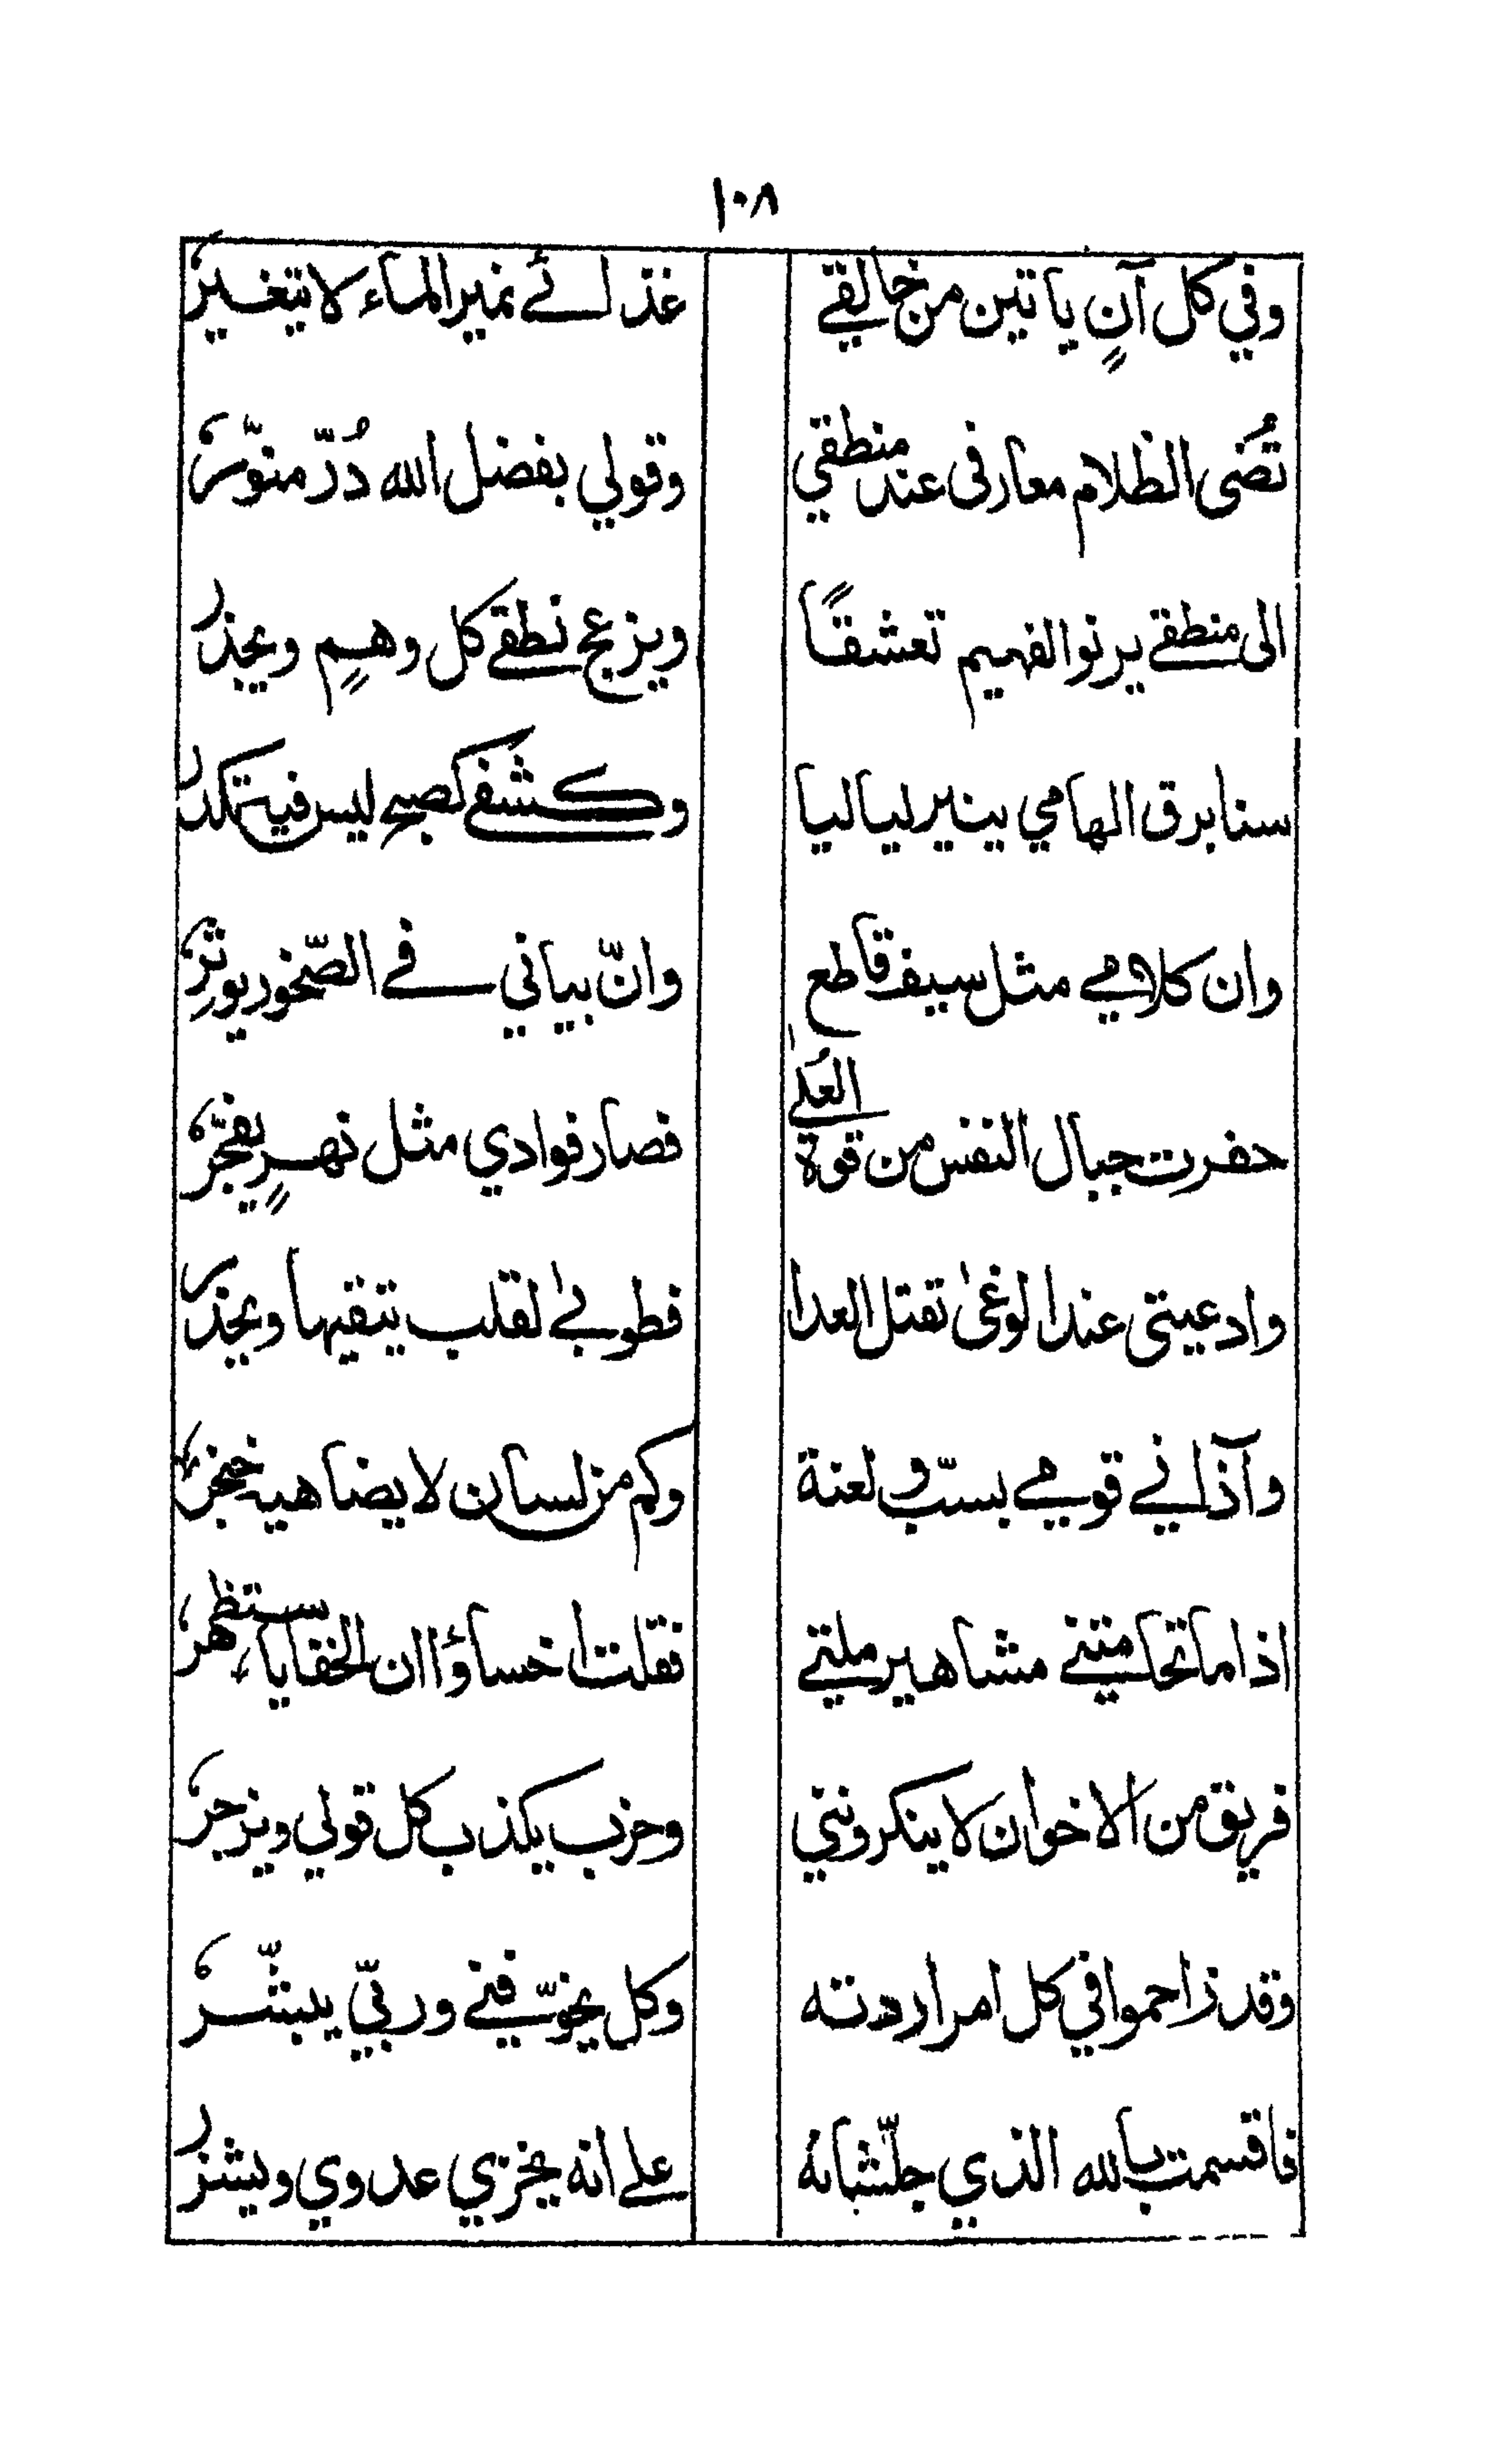 ١٠٨
وفي كل آنٍ ياتين من خالقي غذائے نمير الماء لا يتغير
تُضى الظلام معارفى عند منطقي وقولي بفضل الله دُرّ منوّر
الى منطقے يرنو الفهيم تعشقًا ويزعج نطقے كل وهمٍ ويجذر
سنا برق الهامي ينير لياليا وكشفے كصبح ليس فيه تكدر
وان كلامے مثل سيف قاطع وانّ بياني فے الصّخور يوثر
حفرت جبال النفس من قوة العُلےٰ فصار فوادي مثل نهرٍ يفجّر
وادعيتى عند الوغىٰ تقتل العدا فطوبےٰ لقلب يتقيها ويحذر
وآذانے قومے بسبّ و لعنة وكم من لسان لا يضاهيه خنجر
اذا ما تحامتنے مشاهير ملتے فقلت اخساؤا ان الخفايا ستظهر
فريق من الاخوان لا ينكرونني وحزب يكذب كل قولي ويزجر
وقد زاحموا في كل امر اردته وكل يخوّفنے وربّي يبشّر
فاقسمت بالله الذي جلّ شانه علے انه يخزي عدوي ويشزر